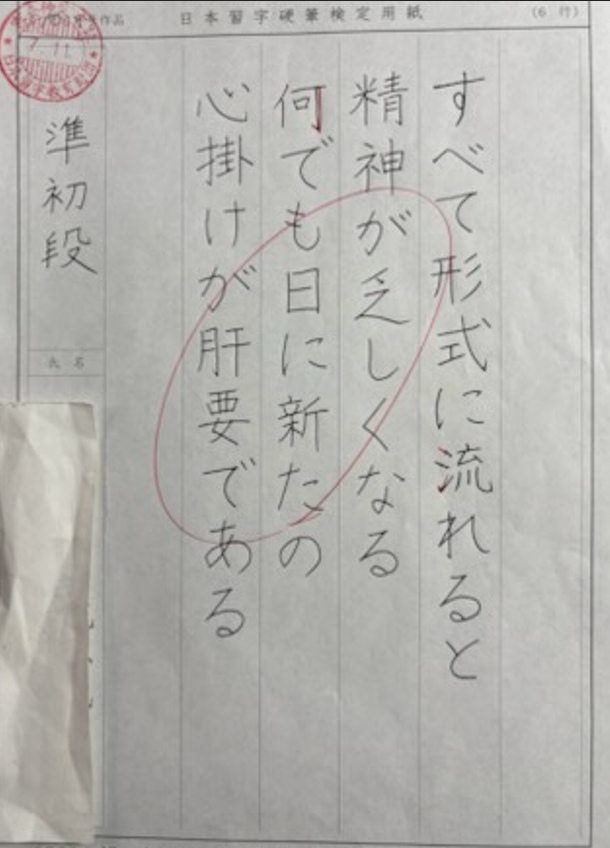 日本習字硬筆検定用紙
(6 行)
すべて形式に流れると
精神が乏しくなる
何でも日に新たの
心掛けが肝要である
準初段
氏名
作品
7.11
日本習字教育財団